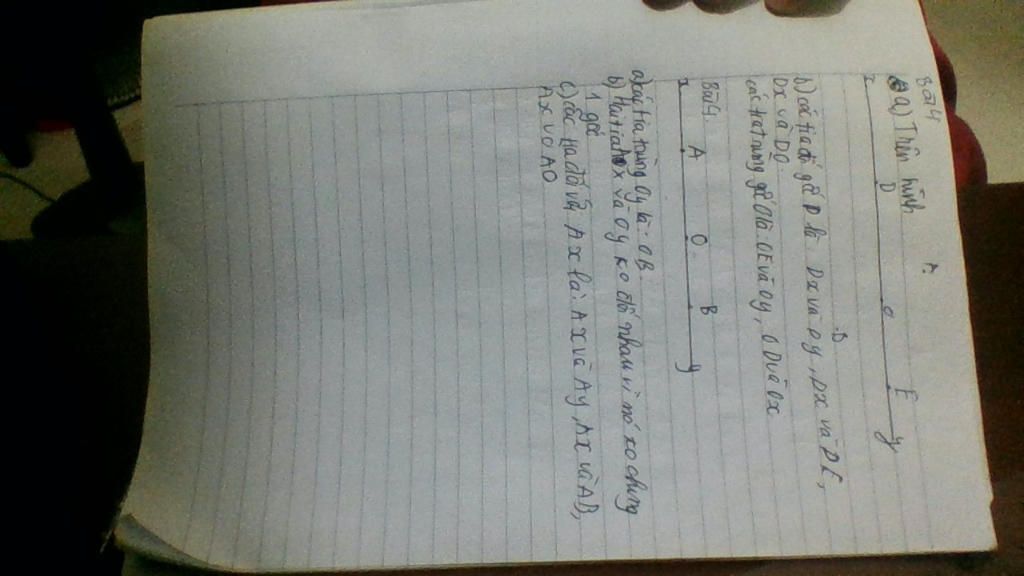 Bài 4
a) Trên hình
A.
x D O E y
.B
b) các tia đối gốc D là Dx và Dy, Dx và DE,
Dx và DO.
các tia trùng gốc O là: OE và Oy, OD và Ox
Bài 4.
x A O B y
a) các tia trùng Oy là: OB
b) Hai tia Ox và Oy ko đối nhau vì nó ko chung
1 gốc
c) các tia đối và Ax là: Ax và Ay, Ax và AB,
Ax và AO